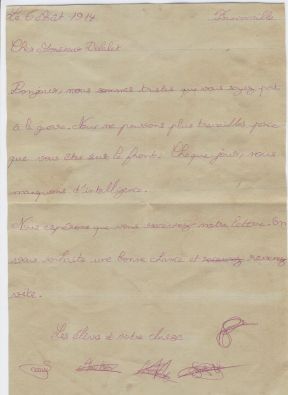 Le 6 Août 1914
Cher Monsieur
Bonjour, nous sommes tristes que vous soyez parti
à la guerre. Nous ne pouvons plus travailler parce
que vous êtes sur le front. Chaque jour, nous
manquons d'intelligence.
Nous espérons que vous recevrez notre lettre. On
vous souhaite une bonne chance et revenez
vite.
Les élèves de notre classe